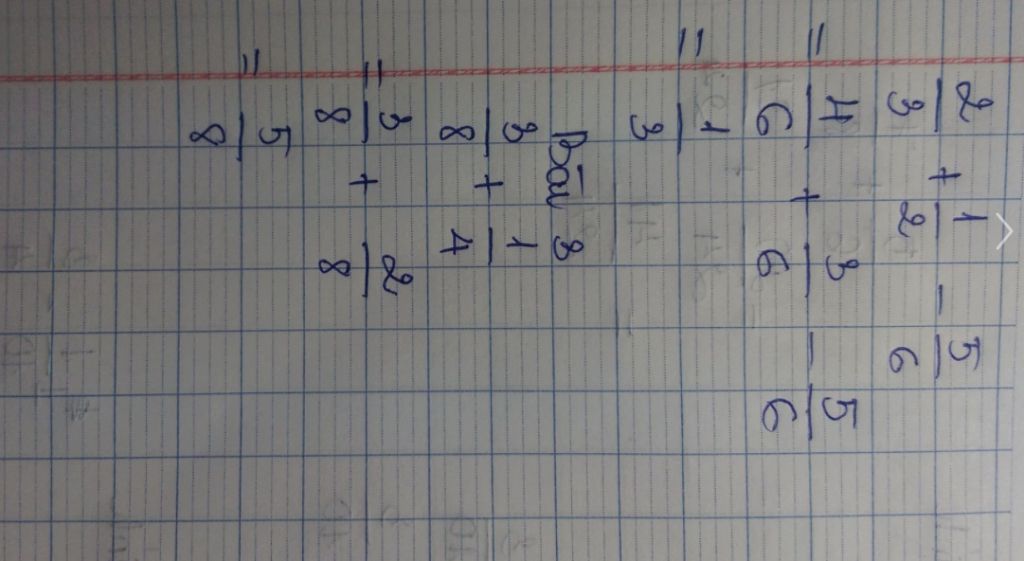 2/3 + 1/2 - 5/6
= 4/6 + 3/6 - 5/6
= 1/3
Bài 3
3/8 + 1/4
= 3/8 + 2/8
= 5/8